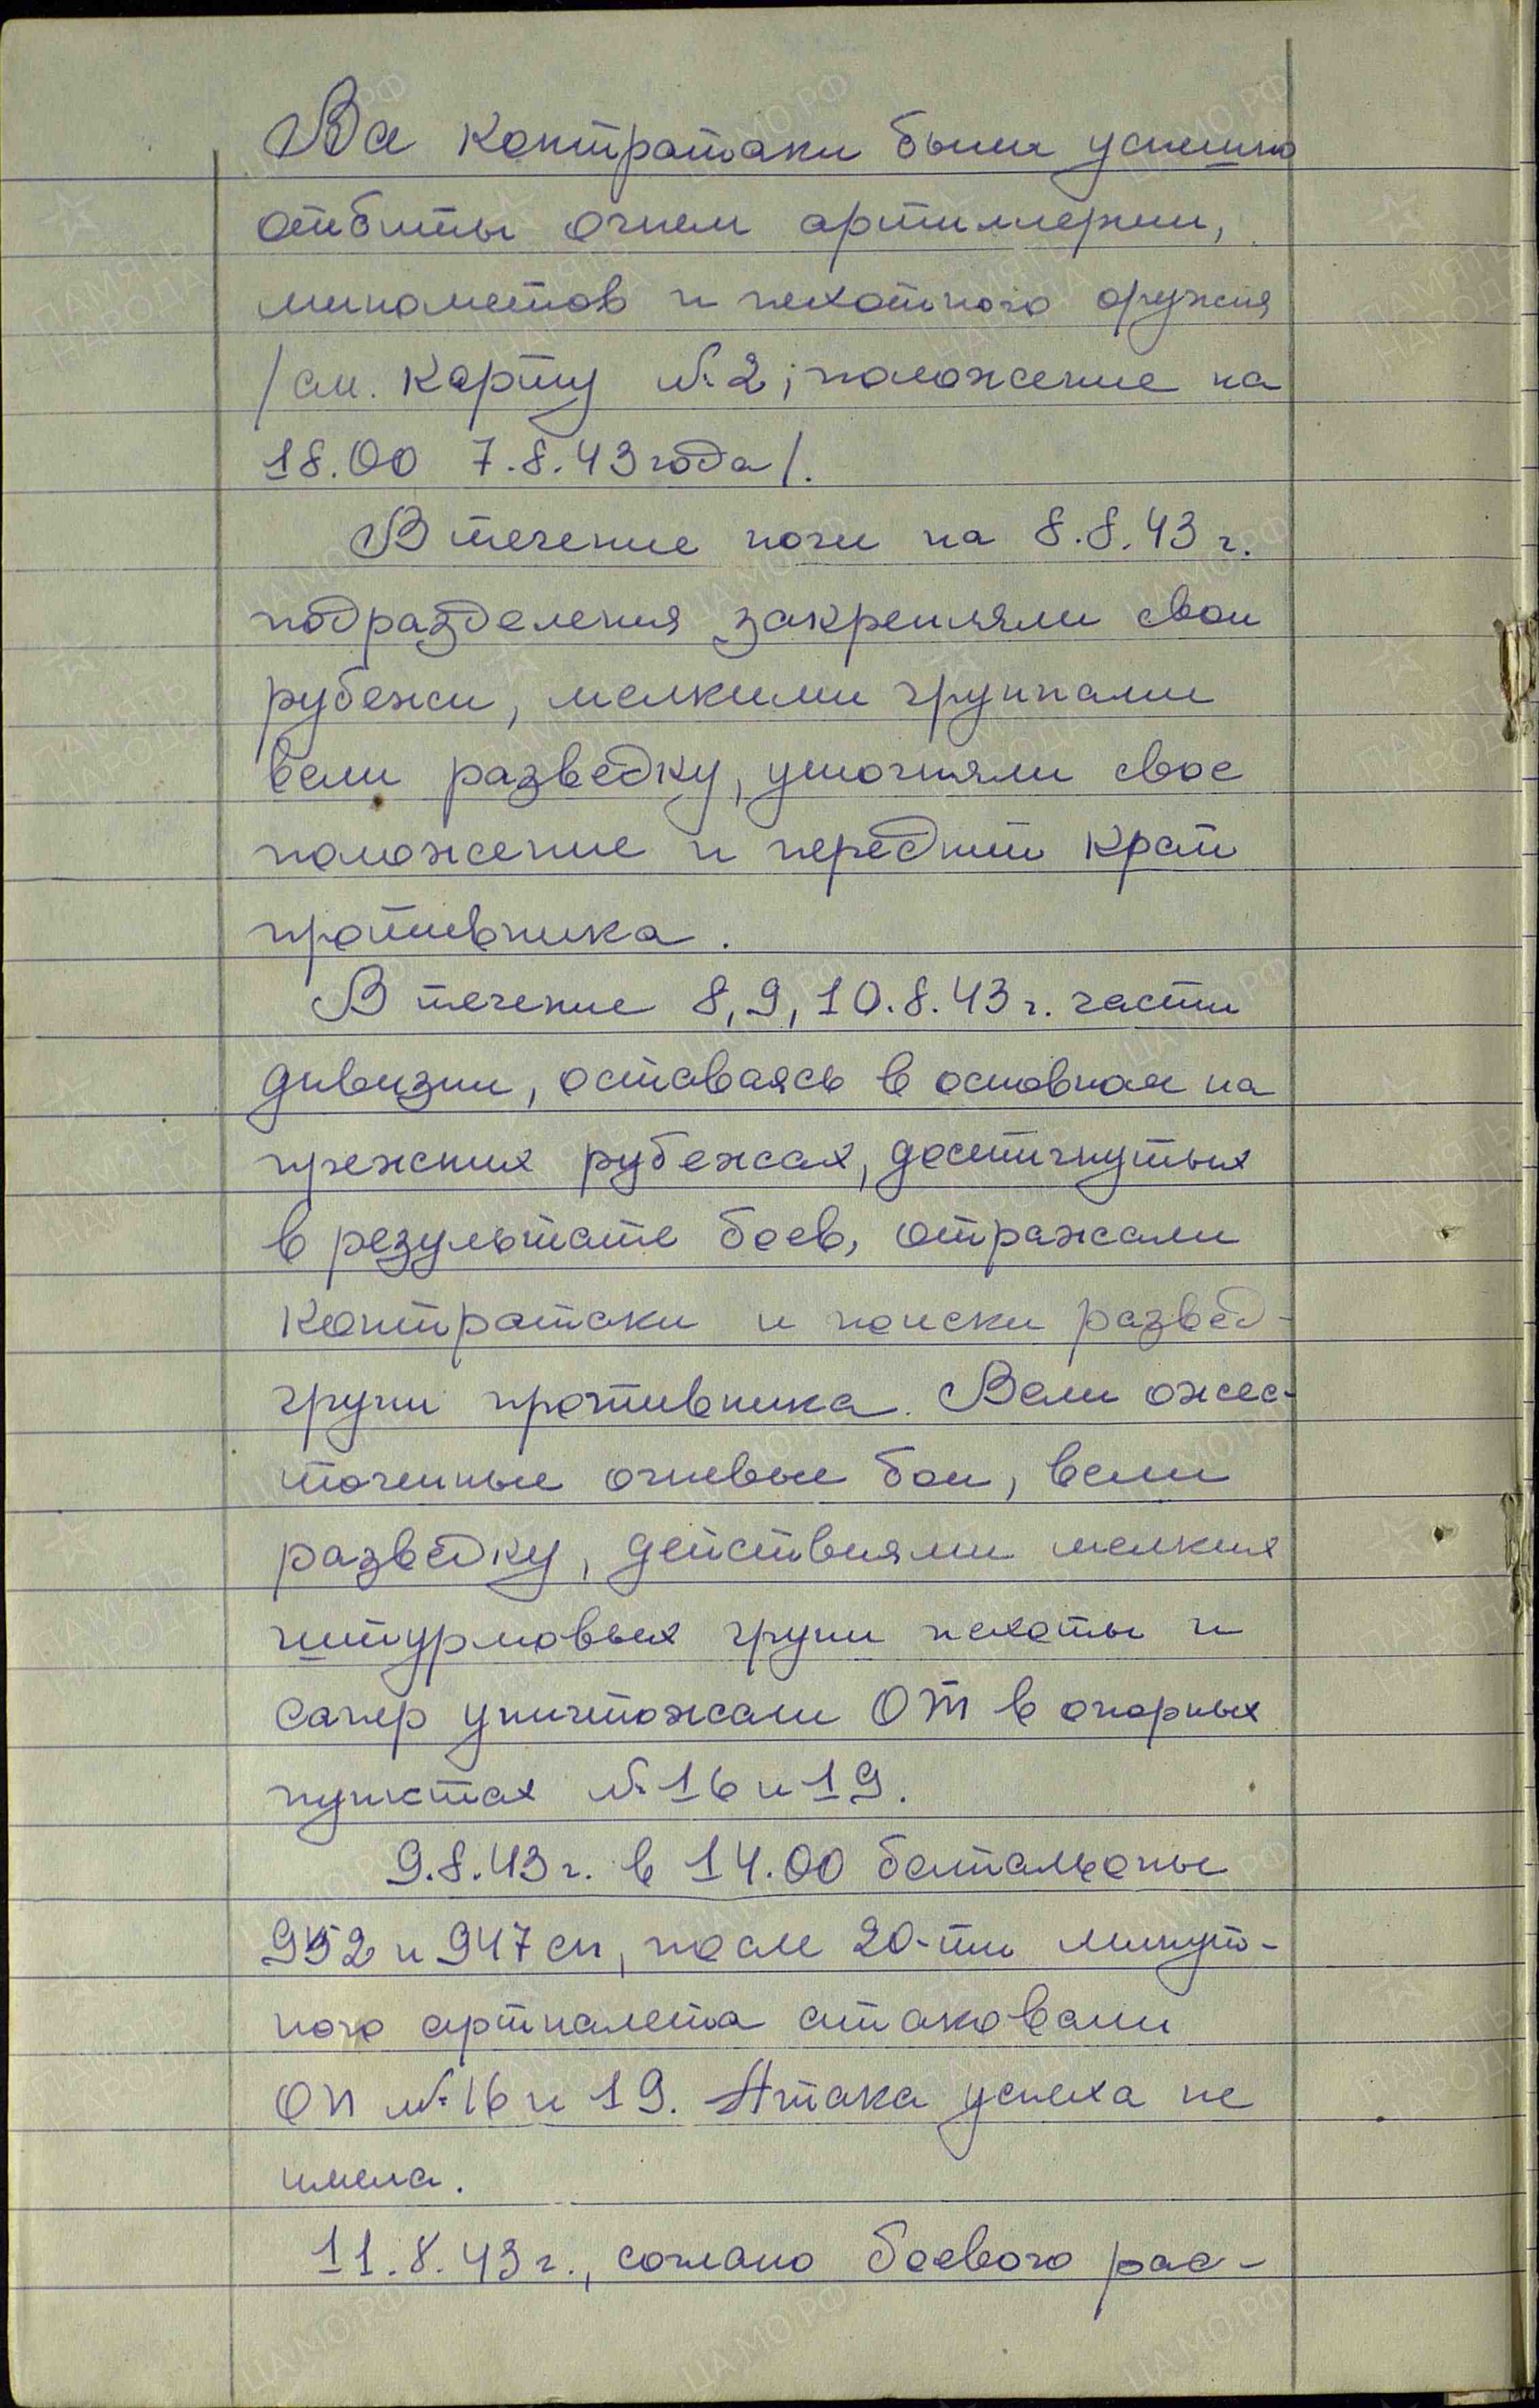 Все контратаки были успешно
отбиты огнем артиллерии,
минометов и пехотного оружия
/см. карту №2; положение на
18.00 7.8.43 года/.
В течение ночи на 8.8.43 г.
подразделения закрепляли свои
рубежи, мелкими группами
вели разведку, уточняли свое
положение и передний край
противника.
В течение 8, 9, 10.8.43 г. части
дивизии, оставаясь в основном на
прежних рубежах, достигнутых
в результате боев, отражали
контратаки и поиски развед-
групп противника. Вели ожес-
точенные огневые бои, вели
разведку, действиями мелких
штурмовых групп пехоты и
сапер уничтожали ОТ в опорных
пунктах №16 и 19.
9.8.43 г. в 14.00 батальоны
952 и 947 сп, после 20-ти минут-
ного артналета атаковали
ОП №16 и 19. Атака успеха не
имела.
11.8.43 г., согласно боевого рас-